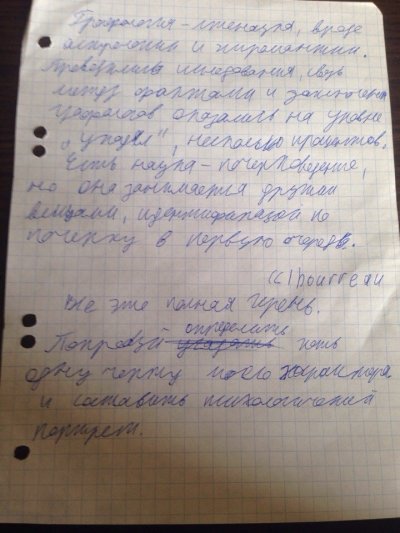 Графология - лженаука, вроде
астрологии и хиромантии.
Проводились исследования, связь
между фактами и заключениями
графологов оказалась на уровне
"угадал", несколько процентов.
Есть наука - почерковедение,
но она занимается другими
вещами, идентификацией по
почерку в первую очередь.
(c) bourreau
же полная
определить
Попробуй угадать хоть
одну черту моего характера
и составить психологический
портрет.